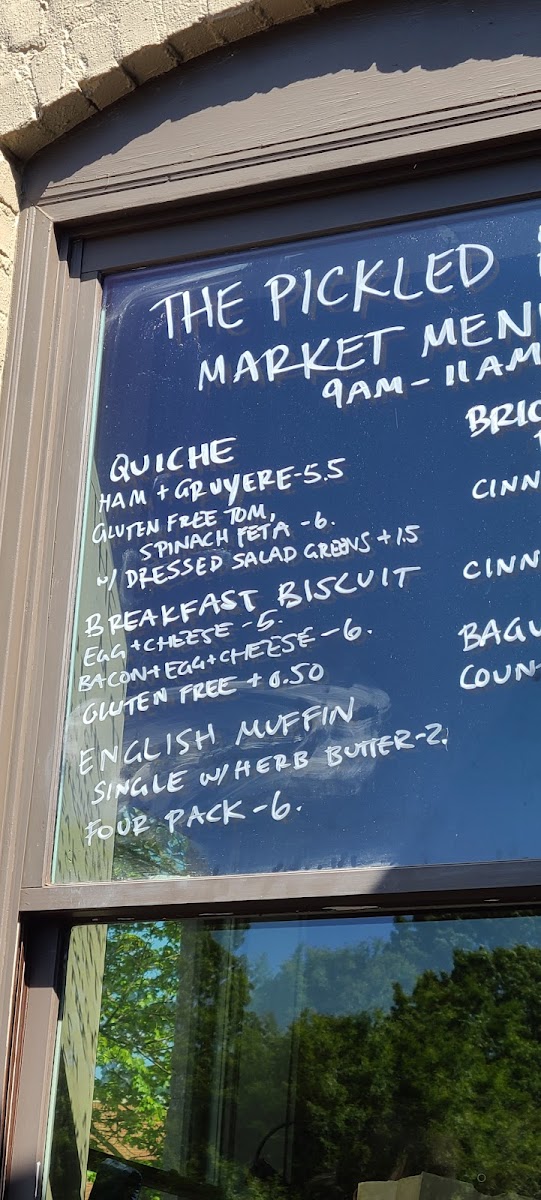 THE PICKLED
MARKET MEN
9AM - 11AM
QUICHE
HAM + GRUYERE - 5.5
GLUTEN FREE TOM,
SPINACH FETA - 6.
W/ DRESSED SALAD GREENS + 1.5
BREAKFAST BISCUIT
EGG + CHEESE - 5.
BACON + EGG + CHEESE - 6.
GLUTEN FREE + 0.50
ENGLISH MUFFIN
SINGLE W/ HERB BUTTER - 2.
FOUR PACK - 6.
BRIO
CINN
CINN
BAGU
COUN